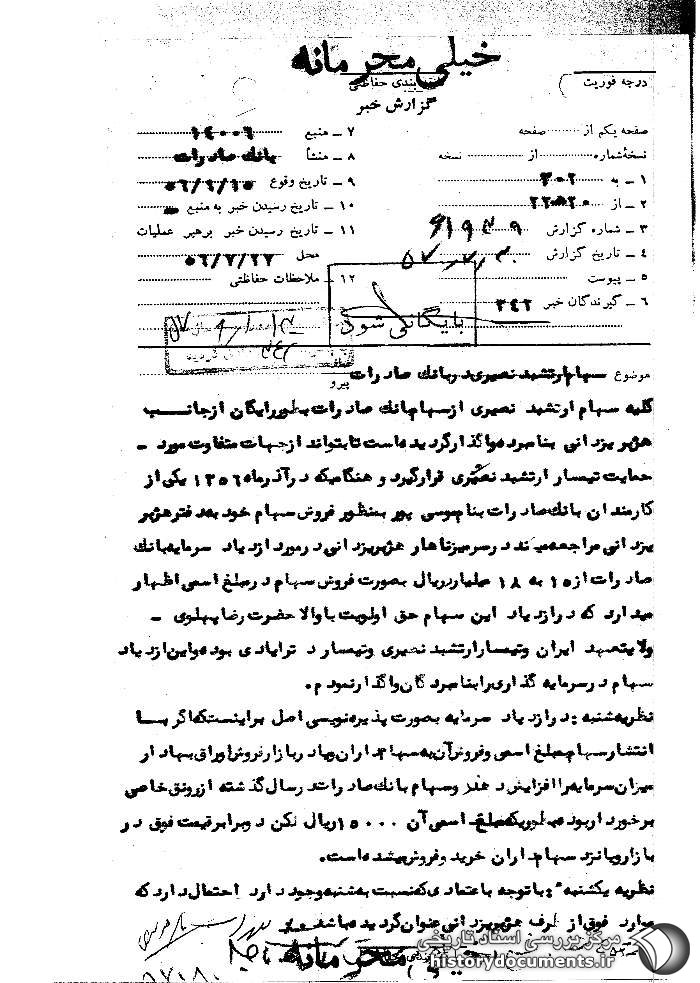 خیلی محرمانه
درجه فوریت
بندی حفاظتی
گزارش خبر
صفحه یکم از صفحه
نسخه شماره از نسخه
۱ – به ۳۰۲
۲ – از ۲۲۵۲۰
۳ – شماره گزارش
۴ – تاریخ گزارش
۵ – پیوست
۶ – گیرندگان خبر ۳۴۲
۷ – منبع ۱۴۰۰۶
۸ – منشأ بانك صادرات
۹ – تاریخ وقوع
۱۰ – تاریخ رسیدن خبر به منبع
۱۱ – تاریخ رسیدن خبر برهبر عملیات
محل
۱۲ – ملاحظات حفاظتی
بایگانی شود
موضوع سهام ارتشبد نصیری در بانك صادرات
پیرو
کلیه سهام ارتشبد نصیری از سهام بانك صادرات بطور رایگان از جانب
هژبر یزدانی بنامبرده واگذار گردیده است تا بتواند از جهات متفاوت مورد –
حمایت تیمسار ارتشبد نصیری قرار گیرد و هنگامیکه در آذرماه ۱۳۵۶ یکی از
کارمندان بانك صادرات بنام موسی پور بمنظور فروش سهام خود به دفتر هژبر
یزدانی مراجعه میکند در سر میز ناهار هژبر یزدانی در مورد ازدیاد سرمایه بانك
صادرات از ۱۵ به ۱۸ میلیارد ریال بصورت فروش سهام در مبلغ اسمی اظهار
میدارد که در ازدیاد این سهام حق اولویت با والاحضرت رضا پهلوی –
ولایتعهد ایران و تیمسار ارتشبد نصیری و تیمسار دکتر ایادی بوده و این ازدیاد
سهام در سرمایه گذاری را بنامبردگان واگذار نمودم.
نظریه شنبه : در ازدیاد سرمایه بصورت پذیره نویسی اصل بر اینست که اگر با
انتشار سهام مبلغ اسمی و فروش آن به سهامداران و یا در بازار فروش اوراق بهادار
میزان سرمایه را افزایش دهند و سهام بانك صادرات در سال گذشته از رونق خاصی
برخوردار بوده بطوریکه مبلغ اسمی آن ۱۵۰۰۰ ریال لکن دو برابر قیمت فوق در
بازار و یا نزد سهامداران خرید و فروش میشده است.
نظریه یکشنبه : با توجه با عتمادی که نسبت به شنبه وجود دارد احتمال دارد که
موارد فوق از طرف هژبر یزدانی عنوان گردیده باشد
خیلی محرمانه
مرکز بررسی اسناد تاریخی
historydocuments.ir